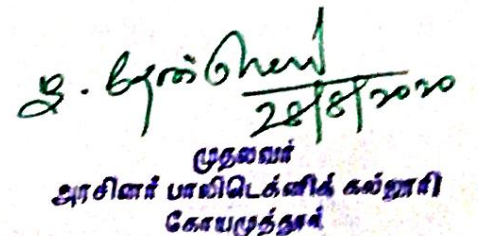 28/8/2020
முதல்வர்
அரசினர் பாலிடெக்னிக் கல்லூரி
கோயமுத்தூர்